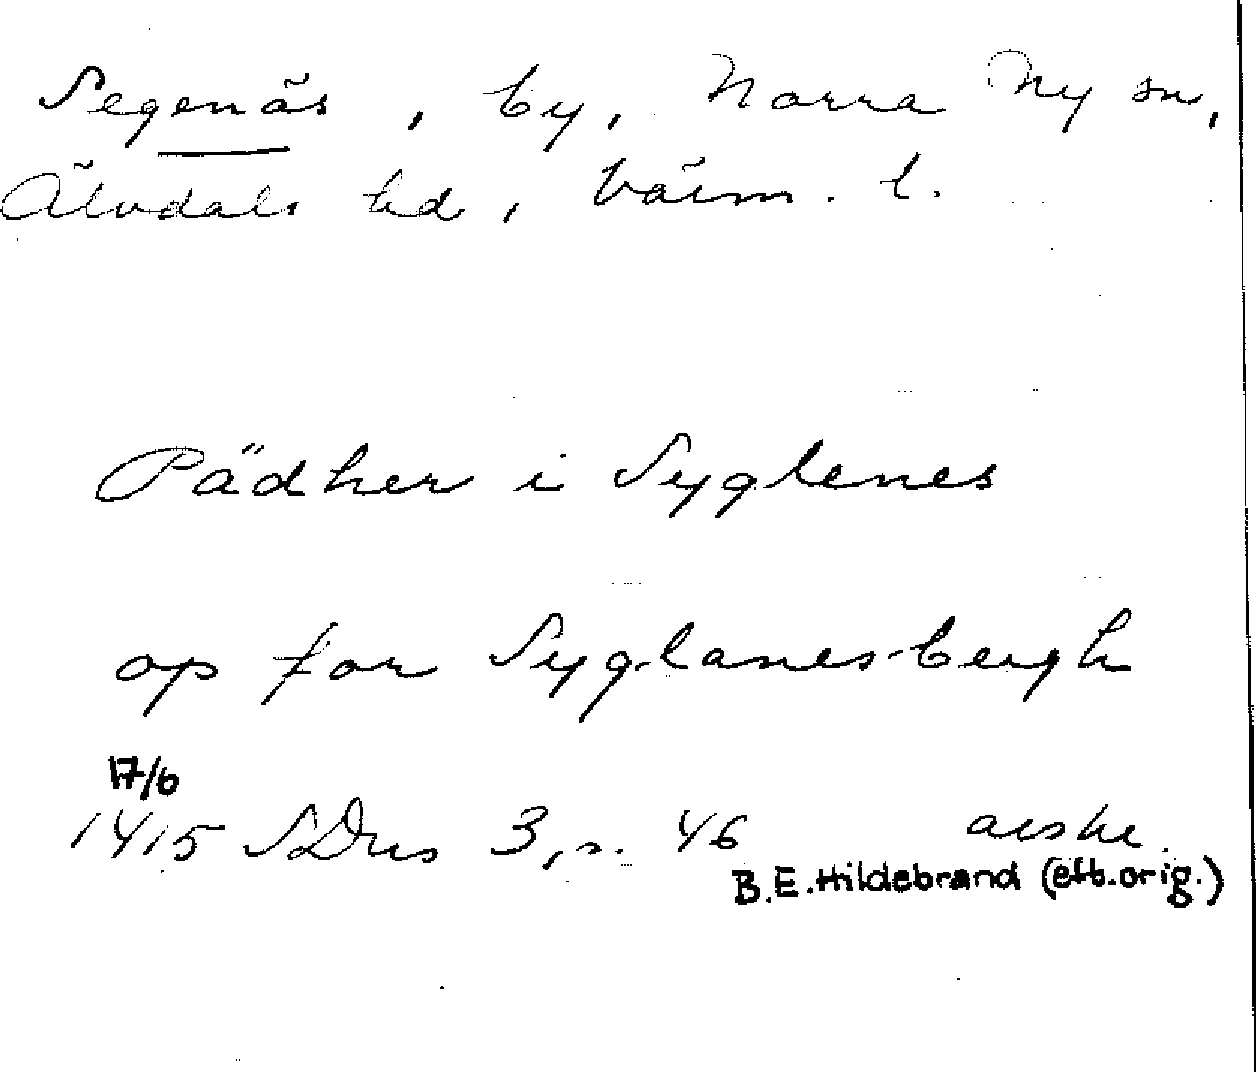 Segenäs, by, Norra Ny sn,
Älvdals hd, Värm. l.
Pädher i Syglenes
op for Syglanesbergh
17/6
1415 SDns 3, s. 46 avskr.
B.E. Hildebrand (eft. orig.)